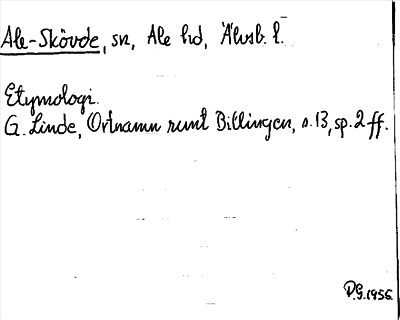 Ale-Skövde, sn, Ale hd, Älvsb. l.
Etymologi.
G. Linde, Ortnamn runt Billingen, s. 13, sp. 2 ff.
P.G. 1956.